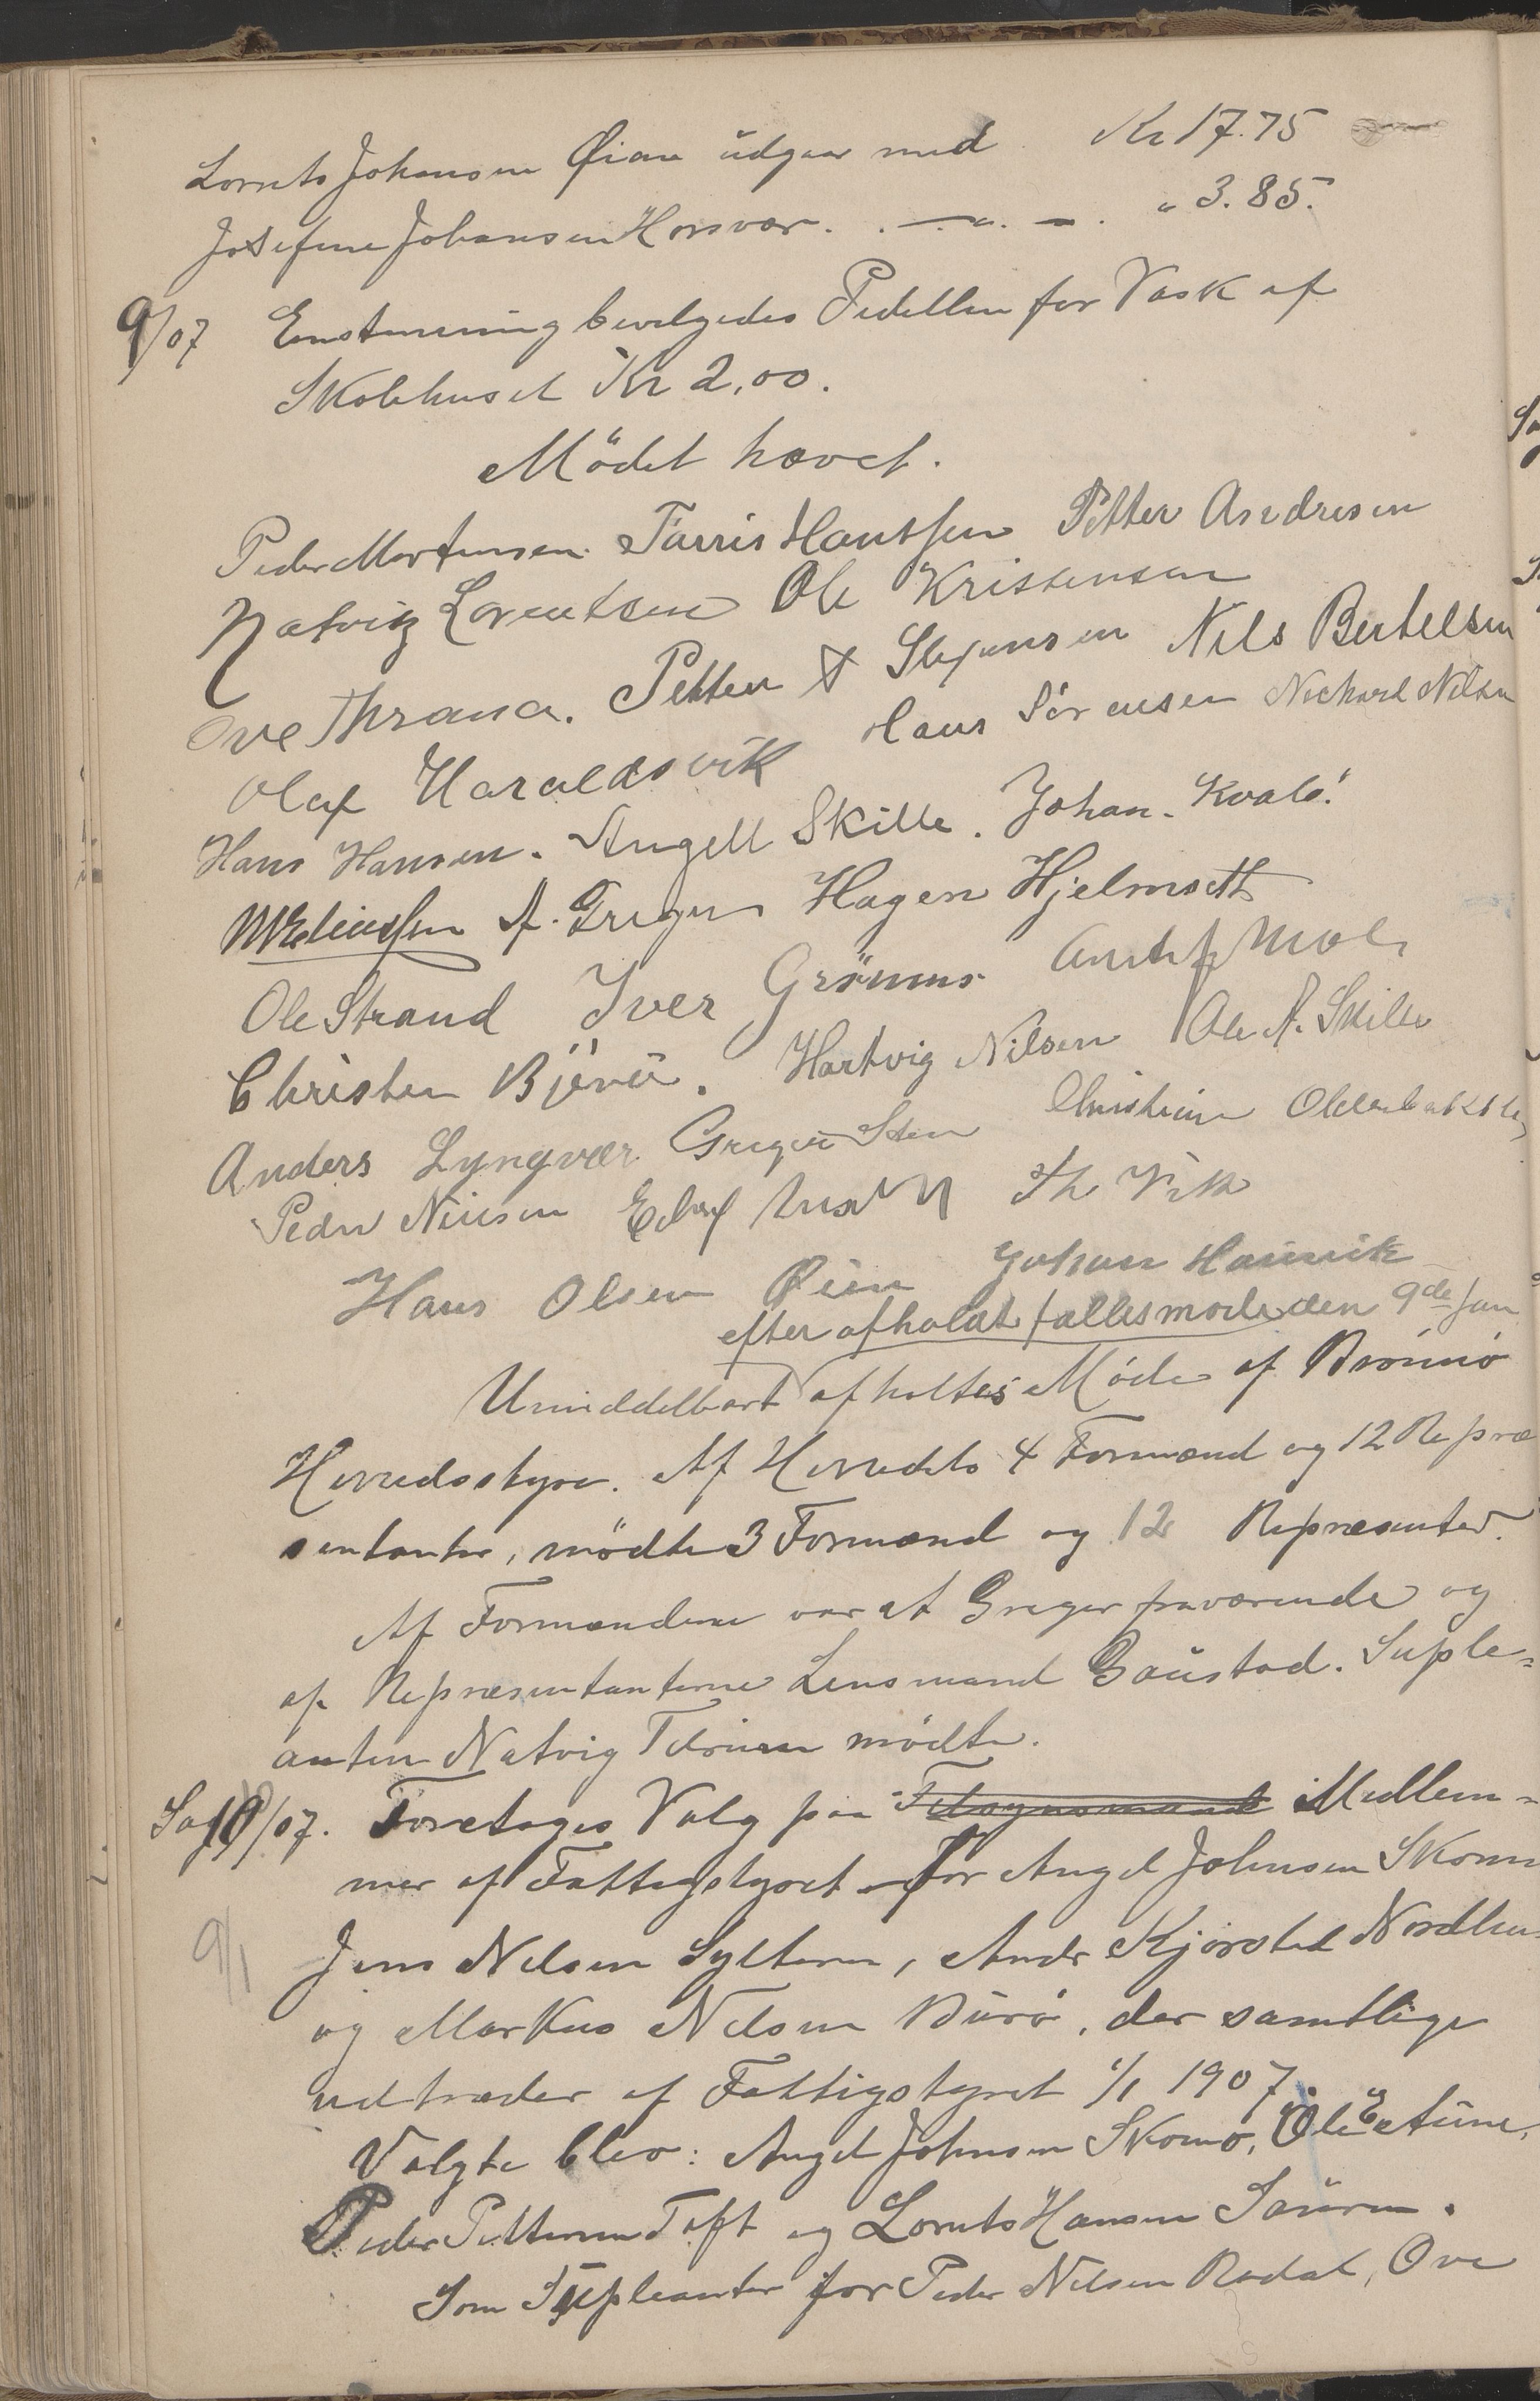 Lornts Johansen Øian udgaar med Kr 17.75
Josefine Johansen Horsvær. . —"— . " 3.85.
9/07 Enstemmig bevilgedes Pedellen for Vask af
Skolehuset Kr 2,00.
Mödet hævet.
Peder Mortensen. Farris Hanssen Petter Andresen
Natvig Lorentsen Ole Kristensen
Ove Thrana. Petter Stefensen Nils Bertelsen
Olaf Haraldsvik Hans Sörensen Nilsen
Hans Hansen. Angell Skille. Johan Kvalö.
A. Greger Hagen Hjelmseth
Ole Strand Iver Grönnes
Christen Hartvig Nilsen Ole A. Skille
Anders Lyngvær Greger Sten
Peder Th Vik
Hans Olsen Øien Johan
efter afholdt fællesmøde den 9de Jan
Umiddelbart afholtes Møde af Brönnö
Herredsstyre. Af Herredets 4 Formænd og 12 Repræ
sentanter, mödte 3 Formænd og 12 Repræsenter.
Af Formændene var A Greger fraværende og
af Repræsentanterne Lensmand Gaustad. Suple=
anten Natvig mödte.
Sag 10/07. Foretoges Valg paa Medlem=
mer af Fattigstyret for Angel Johnsen Skomo
9/1 Jens Nilsen Sylteren, Andr Kjørsted Nordhu
og Markus Nilsen Burö, der samtlige
udtræder af Fattigstyret 1/1 1907.
Valgte blev: Angel Johnsen Skomo, Ole
Peder Pettersen Toft og Lornts Hansen Sauren.
Som Supleanter for Peder Nilsen Rodal, Ove